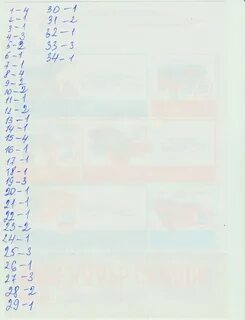 1-4
2-1
3-1
4-3
5-2
6-1
7-1
8-4
9-2
10-2
11-1
12-2
13-1
14-1
15-4
16-1
17-1
18-1
19-3
20-1
21-1
22-1
23-2
24-1
25-3
26-1
27-3
28-2
29-1
30-1
31-2
32-1
33-3
34-1